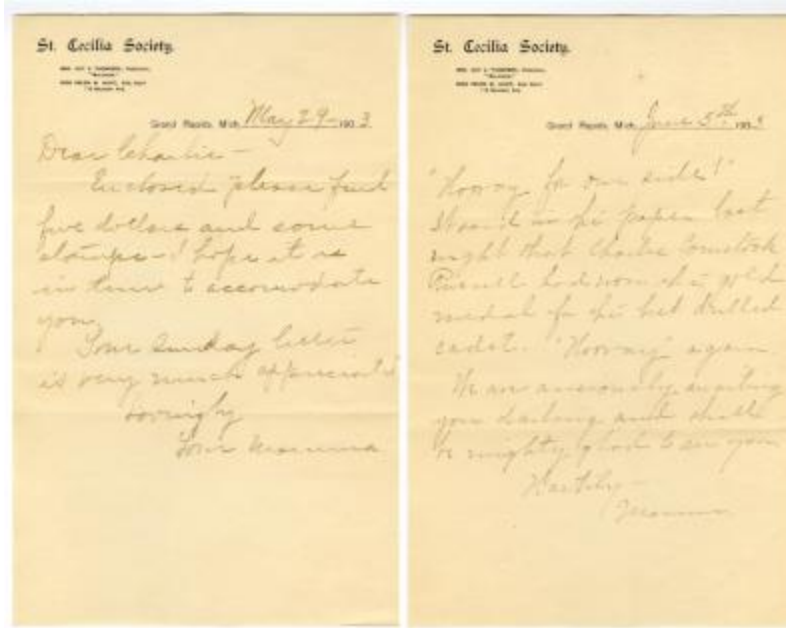 St. Cecilia Society.
Grand Rapids, Mich. May 29 - 190 3
Dear Charlie -
Enclosed please find
five dollars and some
stamps - I hope it is
in time to accomodate
you.
Your Sunday letter
is very much
Lovingly
Your Mamma
St. Cecilia Society.
Grand Rapids, Mich. June 5th 190 3
"Hooray for our side!"
in the paper last
night that Charlie Comstock
had won the gold
medal for the best drilled
cadet. "Hooray" again.
We are anxiously awaiting
your and shall
be mighty glad to see you
Mamma